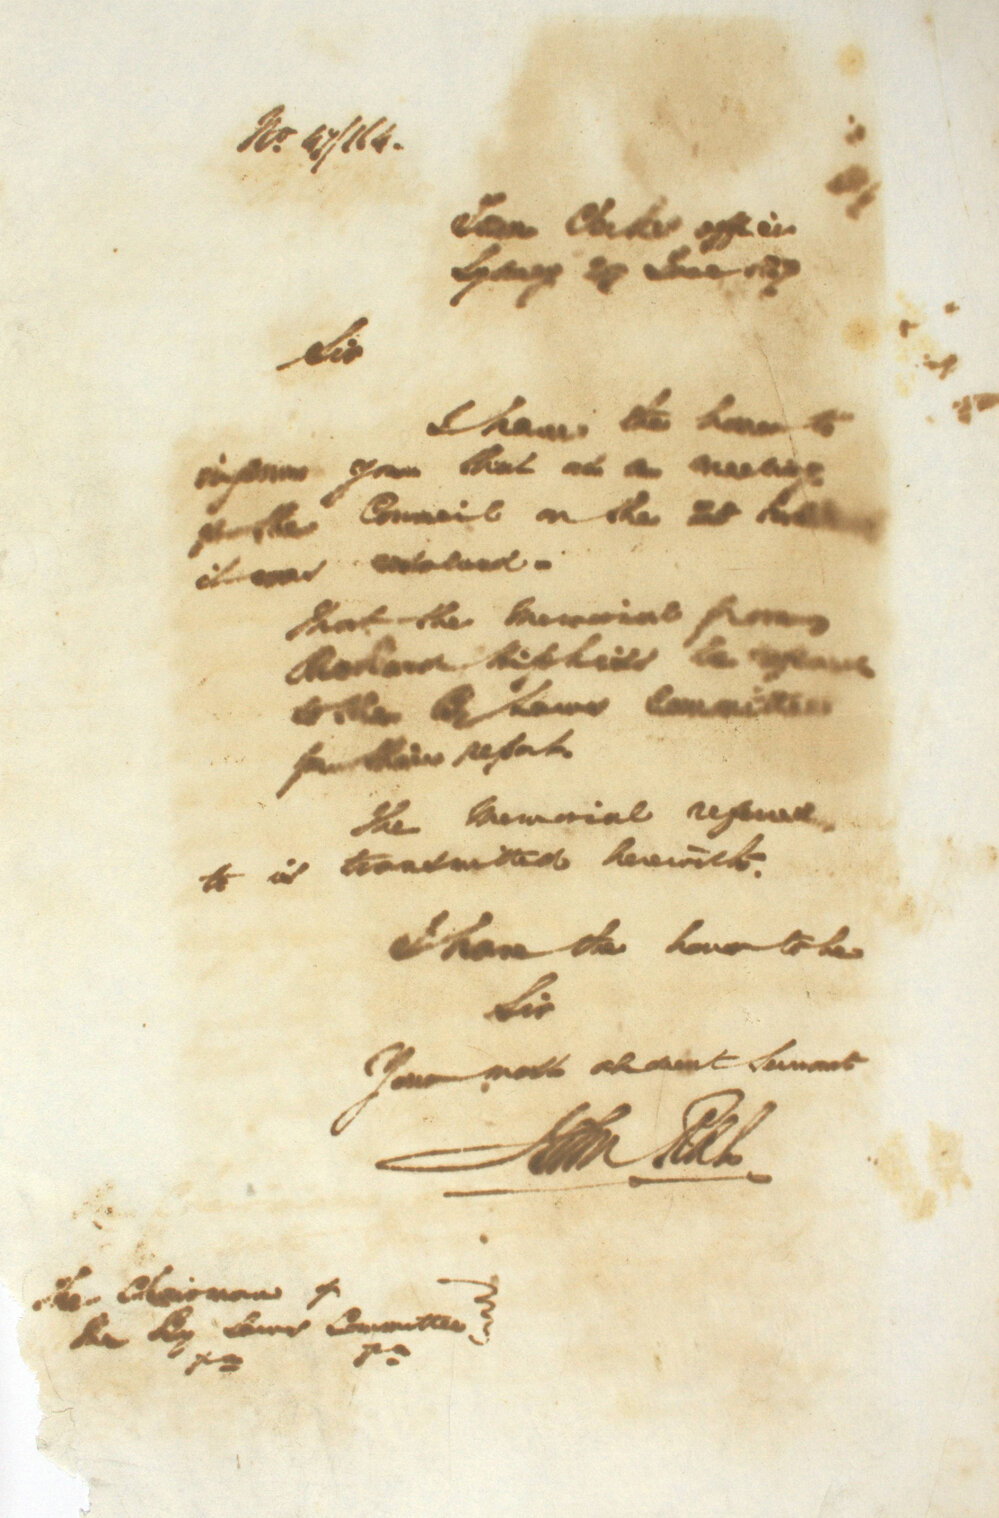 No. 47/164.
Town Clerks office
Sydney 29 June 1847
Sir
I have the honor to
inform you that at a meeting
of the Council on the 28 Inst
it was resolved.
That the Memorial from
be referred
to the By Laws Committee
for their report.
The Memorial referred
to is transmitted herewith.
I have the honor to be
Sir
Your most obedient Servant
John
The Chairman of
the By Laws Committee